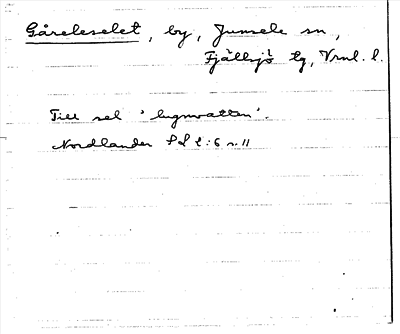 Gåreleselet, by, Junsele sn,
Fjällsjö tg, Vrnl. l.
Till sel 'lugnvatten'.
Nordlander SL l:6 s. 11